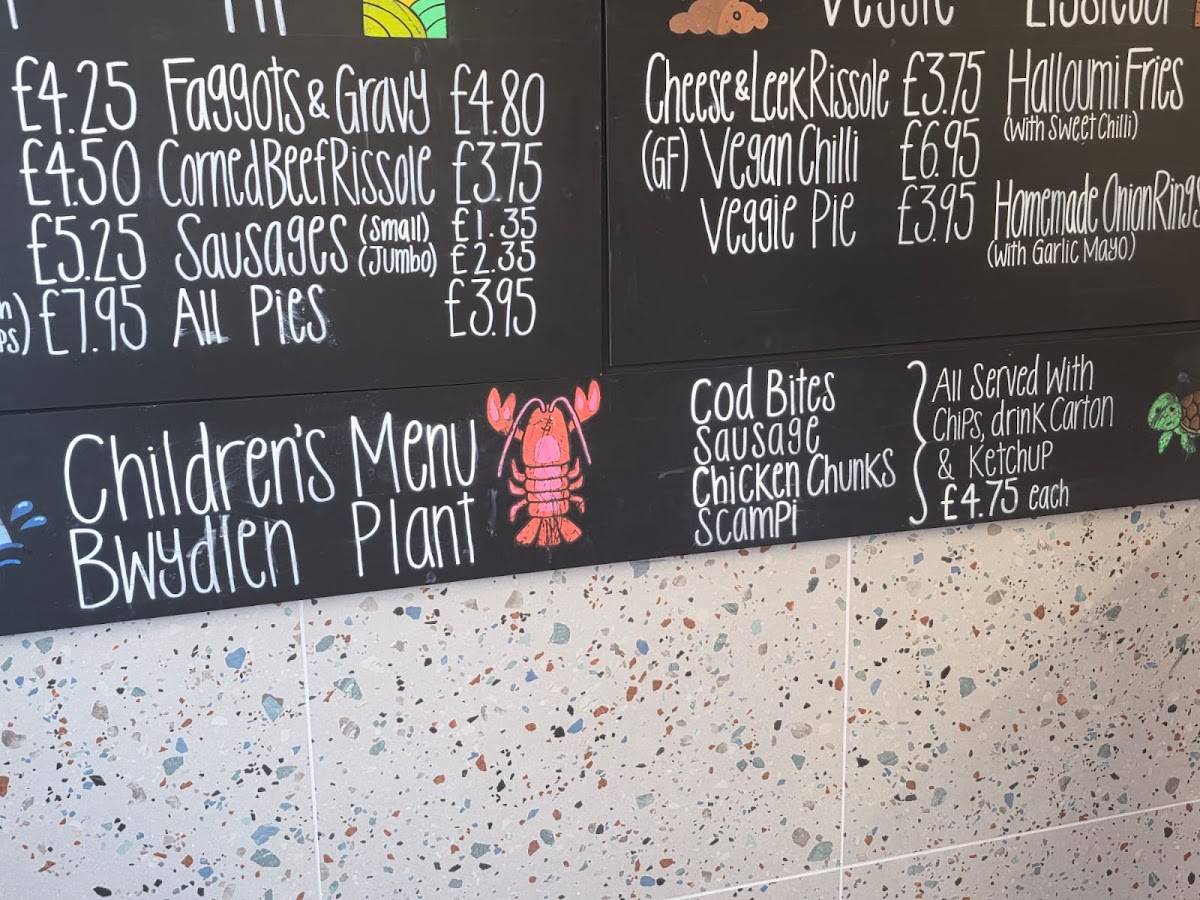 Veggie
£4.25 Faggots & Gravy £4.80
£4.50 Corned Beef Rissole £3.75
£5.25 Sausages (Small) £1.35
(Jumbo) £2.35
£7.95 All Pies £3.95
Cheese & Leek Rissole £3.75
(GF) Vegan Chilli £6.95
Veggie Pie £3.95
Halloumi Fries
(With Sweet Chilli)
Homemade Onion Rings
(With Garlic Mayo)
Children's Menu
Bwydlen Plant
Cod Bites
Sausage
Chicken Chunks
Scampi
All Served With
Chips, drink Carton
& Ketchup
£4.75 each